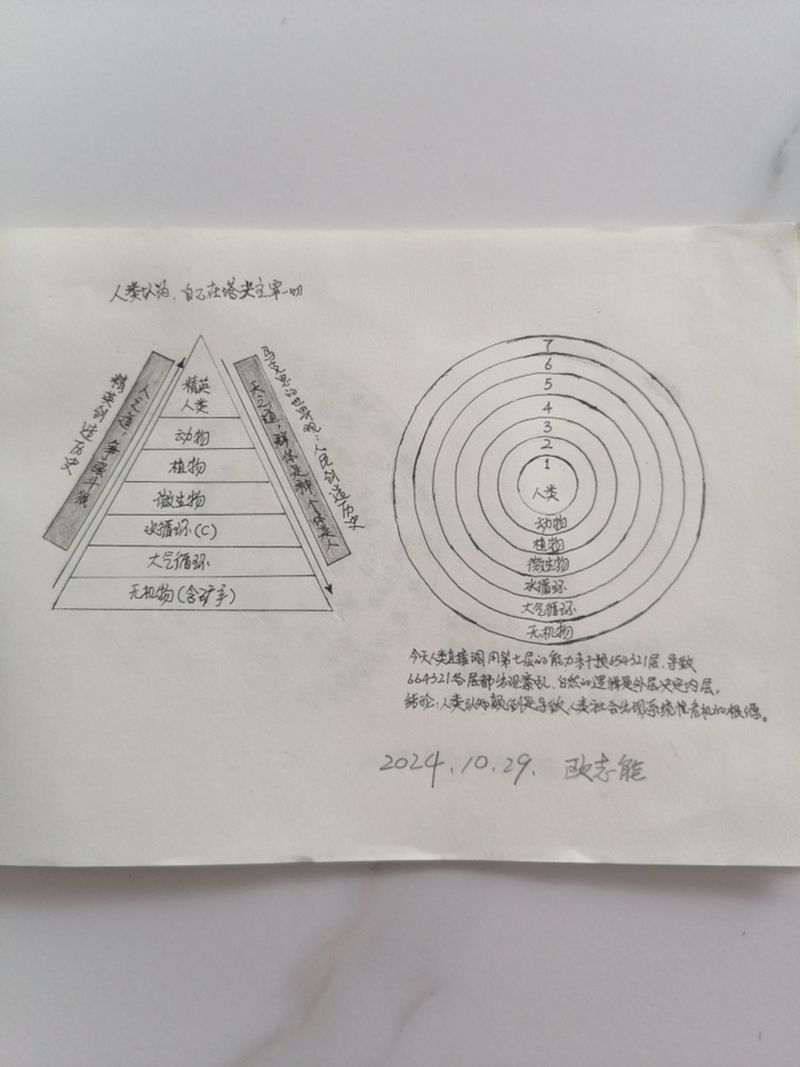 人类以为、自己在塔尖主宰一切
精英创造历史
人之道，争强斗狠
精英
人类
动物
植物
微生物
水循环(C)
大气循环
无机物(含矿产)
天之道，群体是神、个体是人
马克思的世界观：人民创造历史
7
6
5
4
3
2
1
人类
动物
植物
微生物
水循环
大气循环
无机物
今天人类直接调用第七层的能力来干预654321层、导致
664321各层都出现紊乱、自然的逻辑是外层决定内层，
结论：人类认知颠倒是导致人类社会出现系统性危机的根源。
2024.10.29. 欧志能